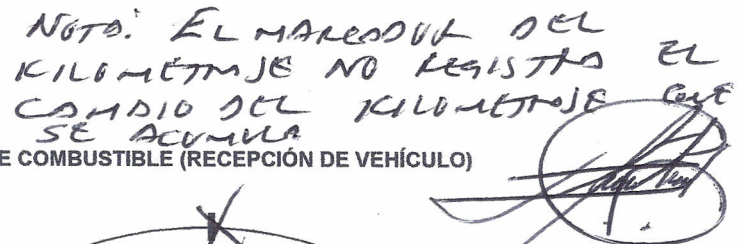 NOTA: EL MARCADOR DEL
KILOMETRAJE NO REGISTRA EL
CAMBIO DEL KILOMETRAJE QUE
SE ACUMULA
E COMBUSTIBLE (RECEPCIÓN DE VEHÍCULO)